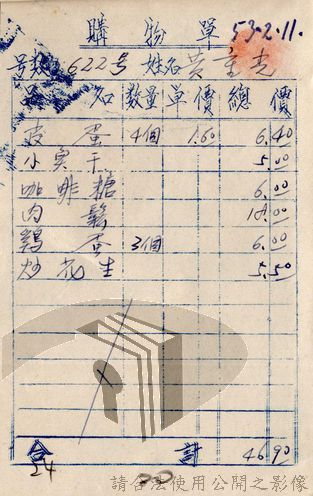 購物單 53.2.11.
号数 622号 姓名 黃重光
品名 数量 單價 總價
皮蛋 4個 1.60 6.40
小 干 5.00
咖啡糖 6.00
肉鬆 18.00
鷄蛋 3個 6.00
炒花生 5.50
合計 46.90
24
請合法使用公開之影像